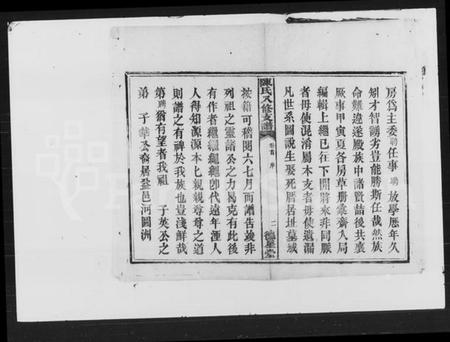 房爲主委任事 放學歷年久
矧才智謭劣豈能勝斯任哉然族
命難違遂殿族中諸賢詰後共襄
厥事甲寅夏各房草册彙齊入局
編輯上繼已往下開將來非同脈
者毋使混淆屬本支者毋使遺漏
凡世系圖說生娶死厝居址墓域
陳氏八修支譜
卷首 序
二 德星堂
按籍可稽閱六七月而譜告竣非
列祖之靈諸公之力曷克有此後
有作者繼繼繩繩卽代遠年湮人
人得知源源本本親親尊尊之道
則譜之有裨於我族也豈淺鮮哉
第 猶有望者我祖 子英公之
弟 子華公裔居益邑河圖洲